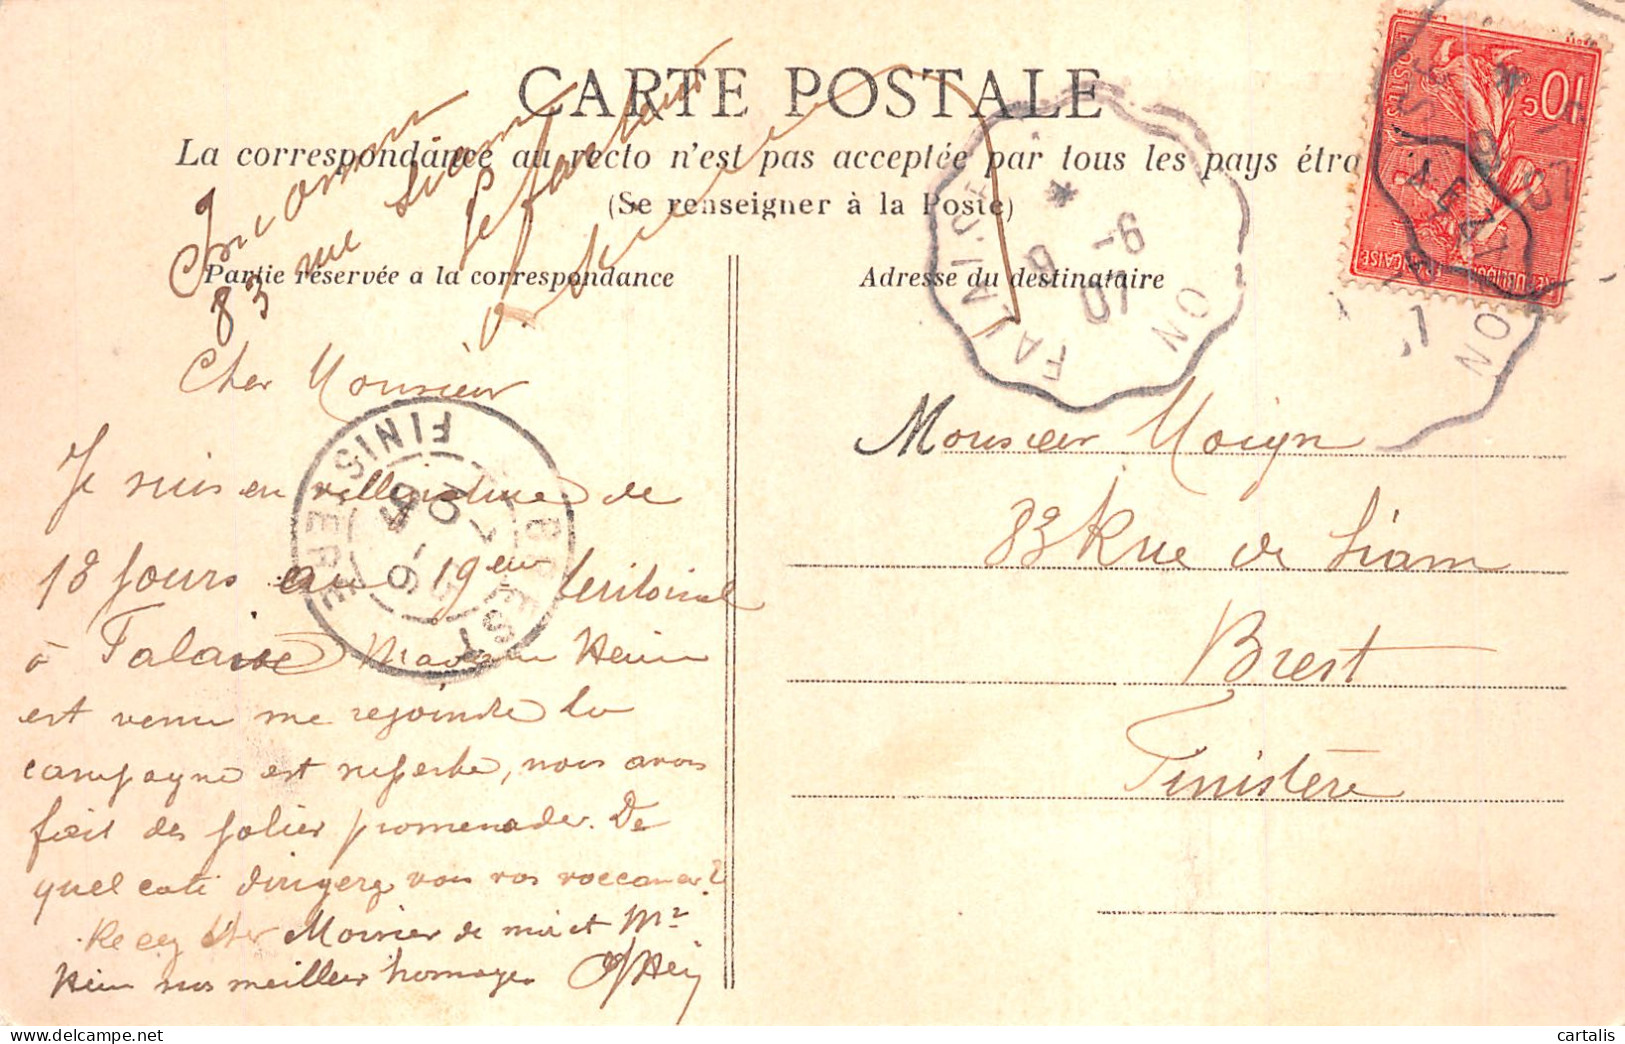 CARTE POSTALE
La correspondance au recto n'est pas acceptée par tous les pays étra
(Se renseigner à la Poste)
Partie réservée a la correspondance
Adresse du destinataire
Inconnu
83 rue Siam
le facteur
Cher Monsieur
Je suis en villegiature de
18 jours au 19em teritoirial
à Falaise
est venu me rejoindre la
campagne est superbe, nous avons
fait des jolies promenades. De
quel coté dirigerez vous vos vaccances?
Recevez cher Monsier de moi et Mr
nos meilleur homages
Monsieur Moign
83 Rue de Siam
Brest
Finistère
FALAISE
ON
6 - 9
07
BREST
FINISTERE
10c
POSTES
REPUBLIQUE FRANÇAISE
cartalis